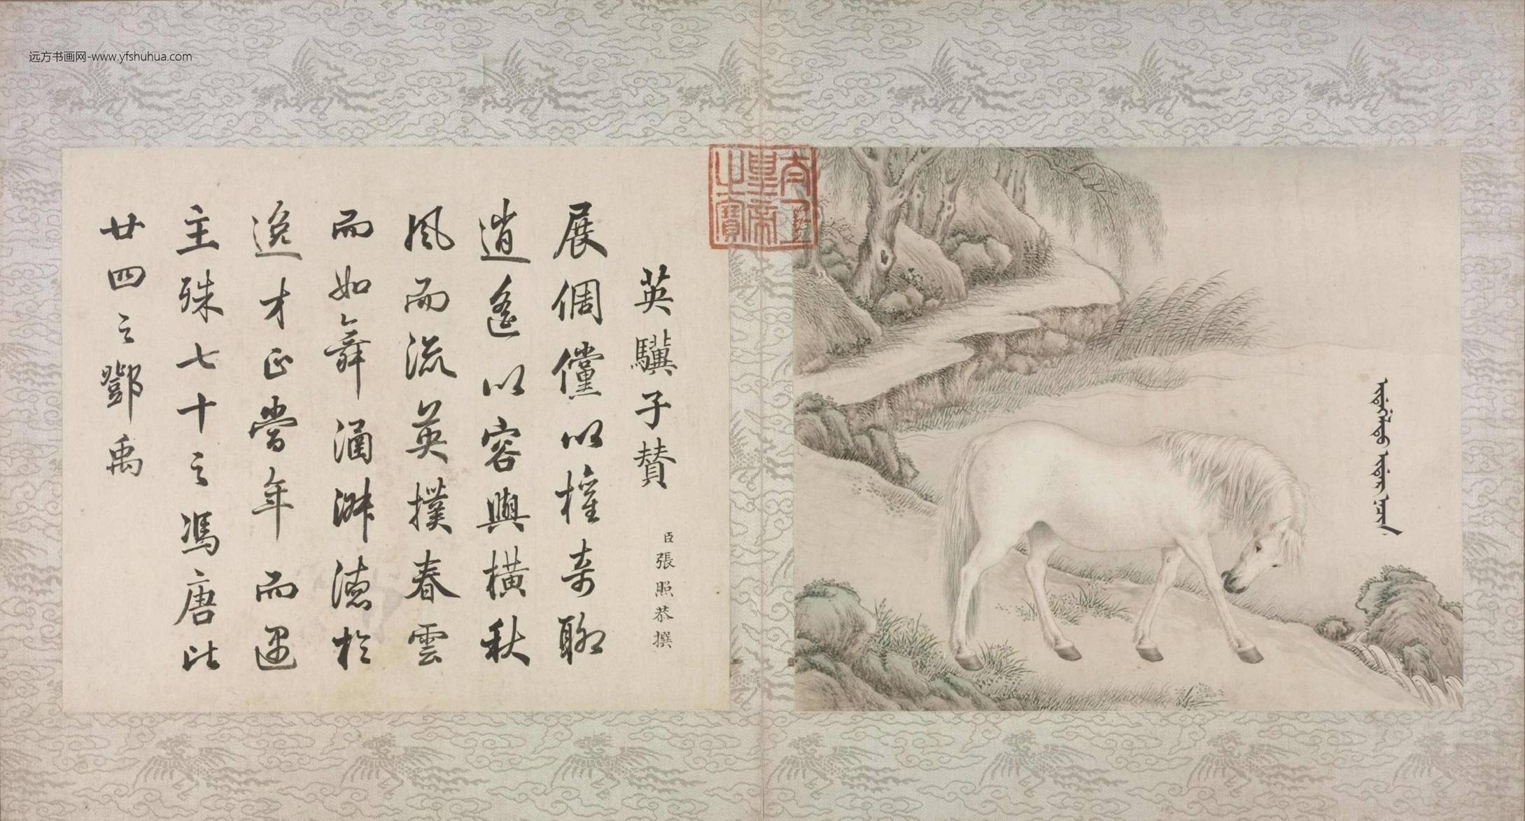 远方书画网-www.yfshuhua.com
英驥子賛
臣張照恭撰
展倜儻以權奇聊
逍遙以容與橫秋
風而流英撲春雲
而如舞涵淋漓於
逸才正當年而遇
主殊七十之馮唐比
廿四之鄧禹
太上皇帝之寶